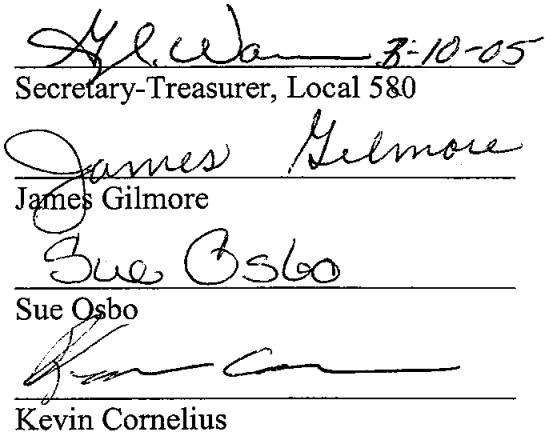 3-10-05
Secretary-Treasurer, Local 580
James Gilmore
James Gilmore
Sue Osbo
Sue Osbo
Kevin Cornelius